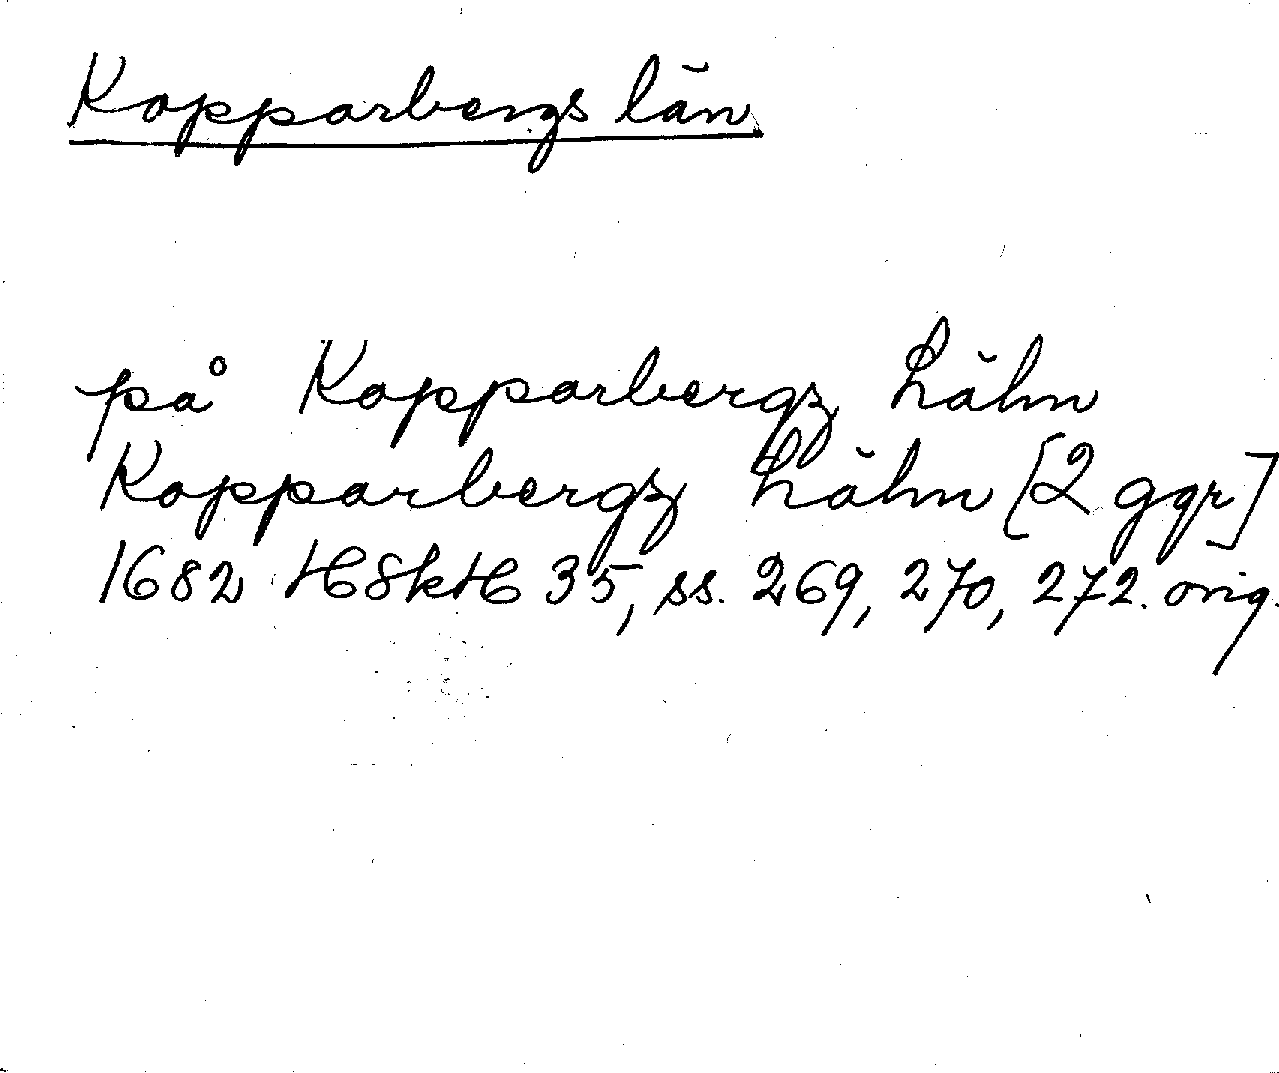 Kopparbergs län
på Kopparbergz Lähn
Kopparbergz Lähn [2 ggr]
1682 H8kH 35, ss. 269, 270, 272. orig.